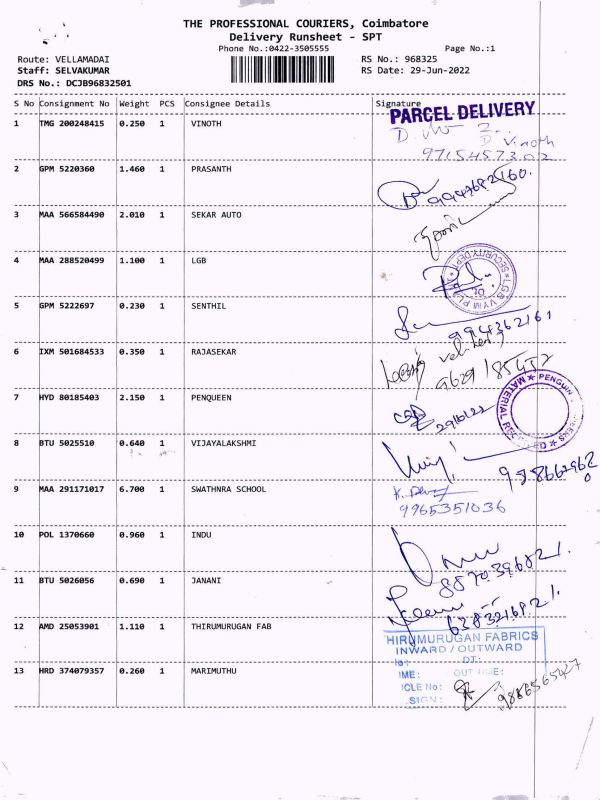 THE PROFESSIONAL COURIERS, Coimbatore
Delivery Runsheet - SPT
Phone No.:0422-3505555
Page No.:1
Route: VELLAMADAI
RS No.: 968325
Staff: SELVAKUMAR
RS Date: 29-Jun-2022
DRS No.: DCJB96832501
S No Consignment No Weight PCS Consignee Details Signature
PARCEL DELIVERY
1 TMG 200248415 0.250 1 VINOTH
D. Vinoth
9715457302
2 GPM 5220360 1.460 1 PRASANTH
9943682160.
3 MAA 566584490 2.010 1 SEKAR AUTO
4 MAA 288520499 1.100 1 LGB
SECURITY DEPT
5 GPM 5222697 0.230 1 SENTHIL
994362161
6 IXM 501684533 0.350 1 RAJASEKAR
7 HYD 80185403 2.150 1 PENQUEEN
PENGUIN
MATERIAL
8 BTU 5025510 0.640 1 VIJAYALAKSHMI
9 MAA 291171017 6.700 1 SWATHNRA SCHOOL
9965351036
10 POL 1370660 0.960 1 INDU
8870396821.
11 BTU 5026056 0.690 1 JANANI
12 AMD 25053901 1.110 1 THIRUMURUGAN FAB
HIRUMURUGAN FABRICS
INWARD / OUTWARD
DT:
13 HRD 374079357 0.260 1 MARIMUTHU
IME: OUT TIME:
ICLE No:
SIGN:
9886565427